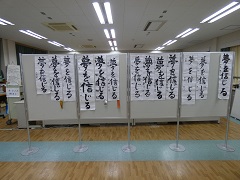 夢を信じる
夢を信じる
夢を信じる
夢を信じる
夢を信じる
夢を信じる
夢を信じる
夢を信じる
夢を信じる
夢を信じる
夢を信じる